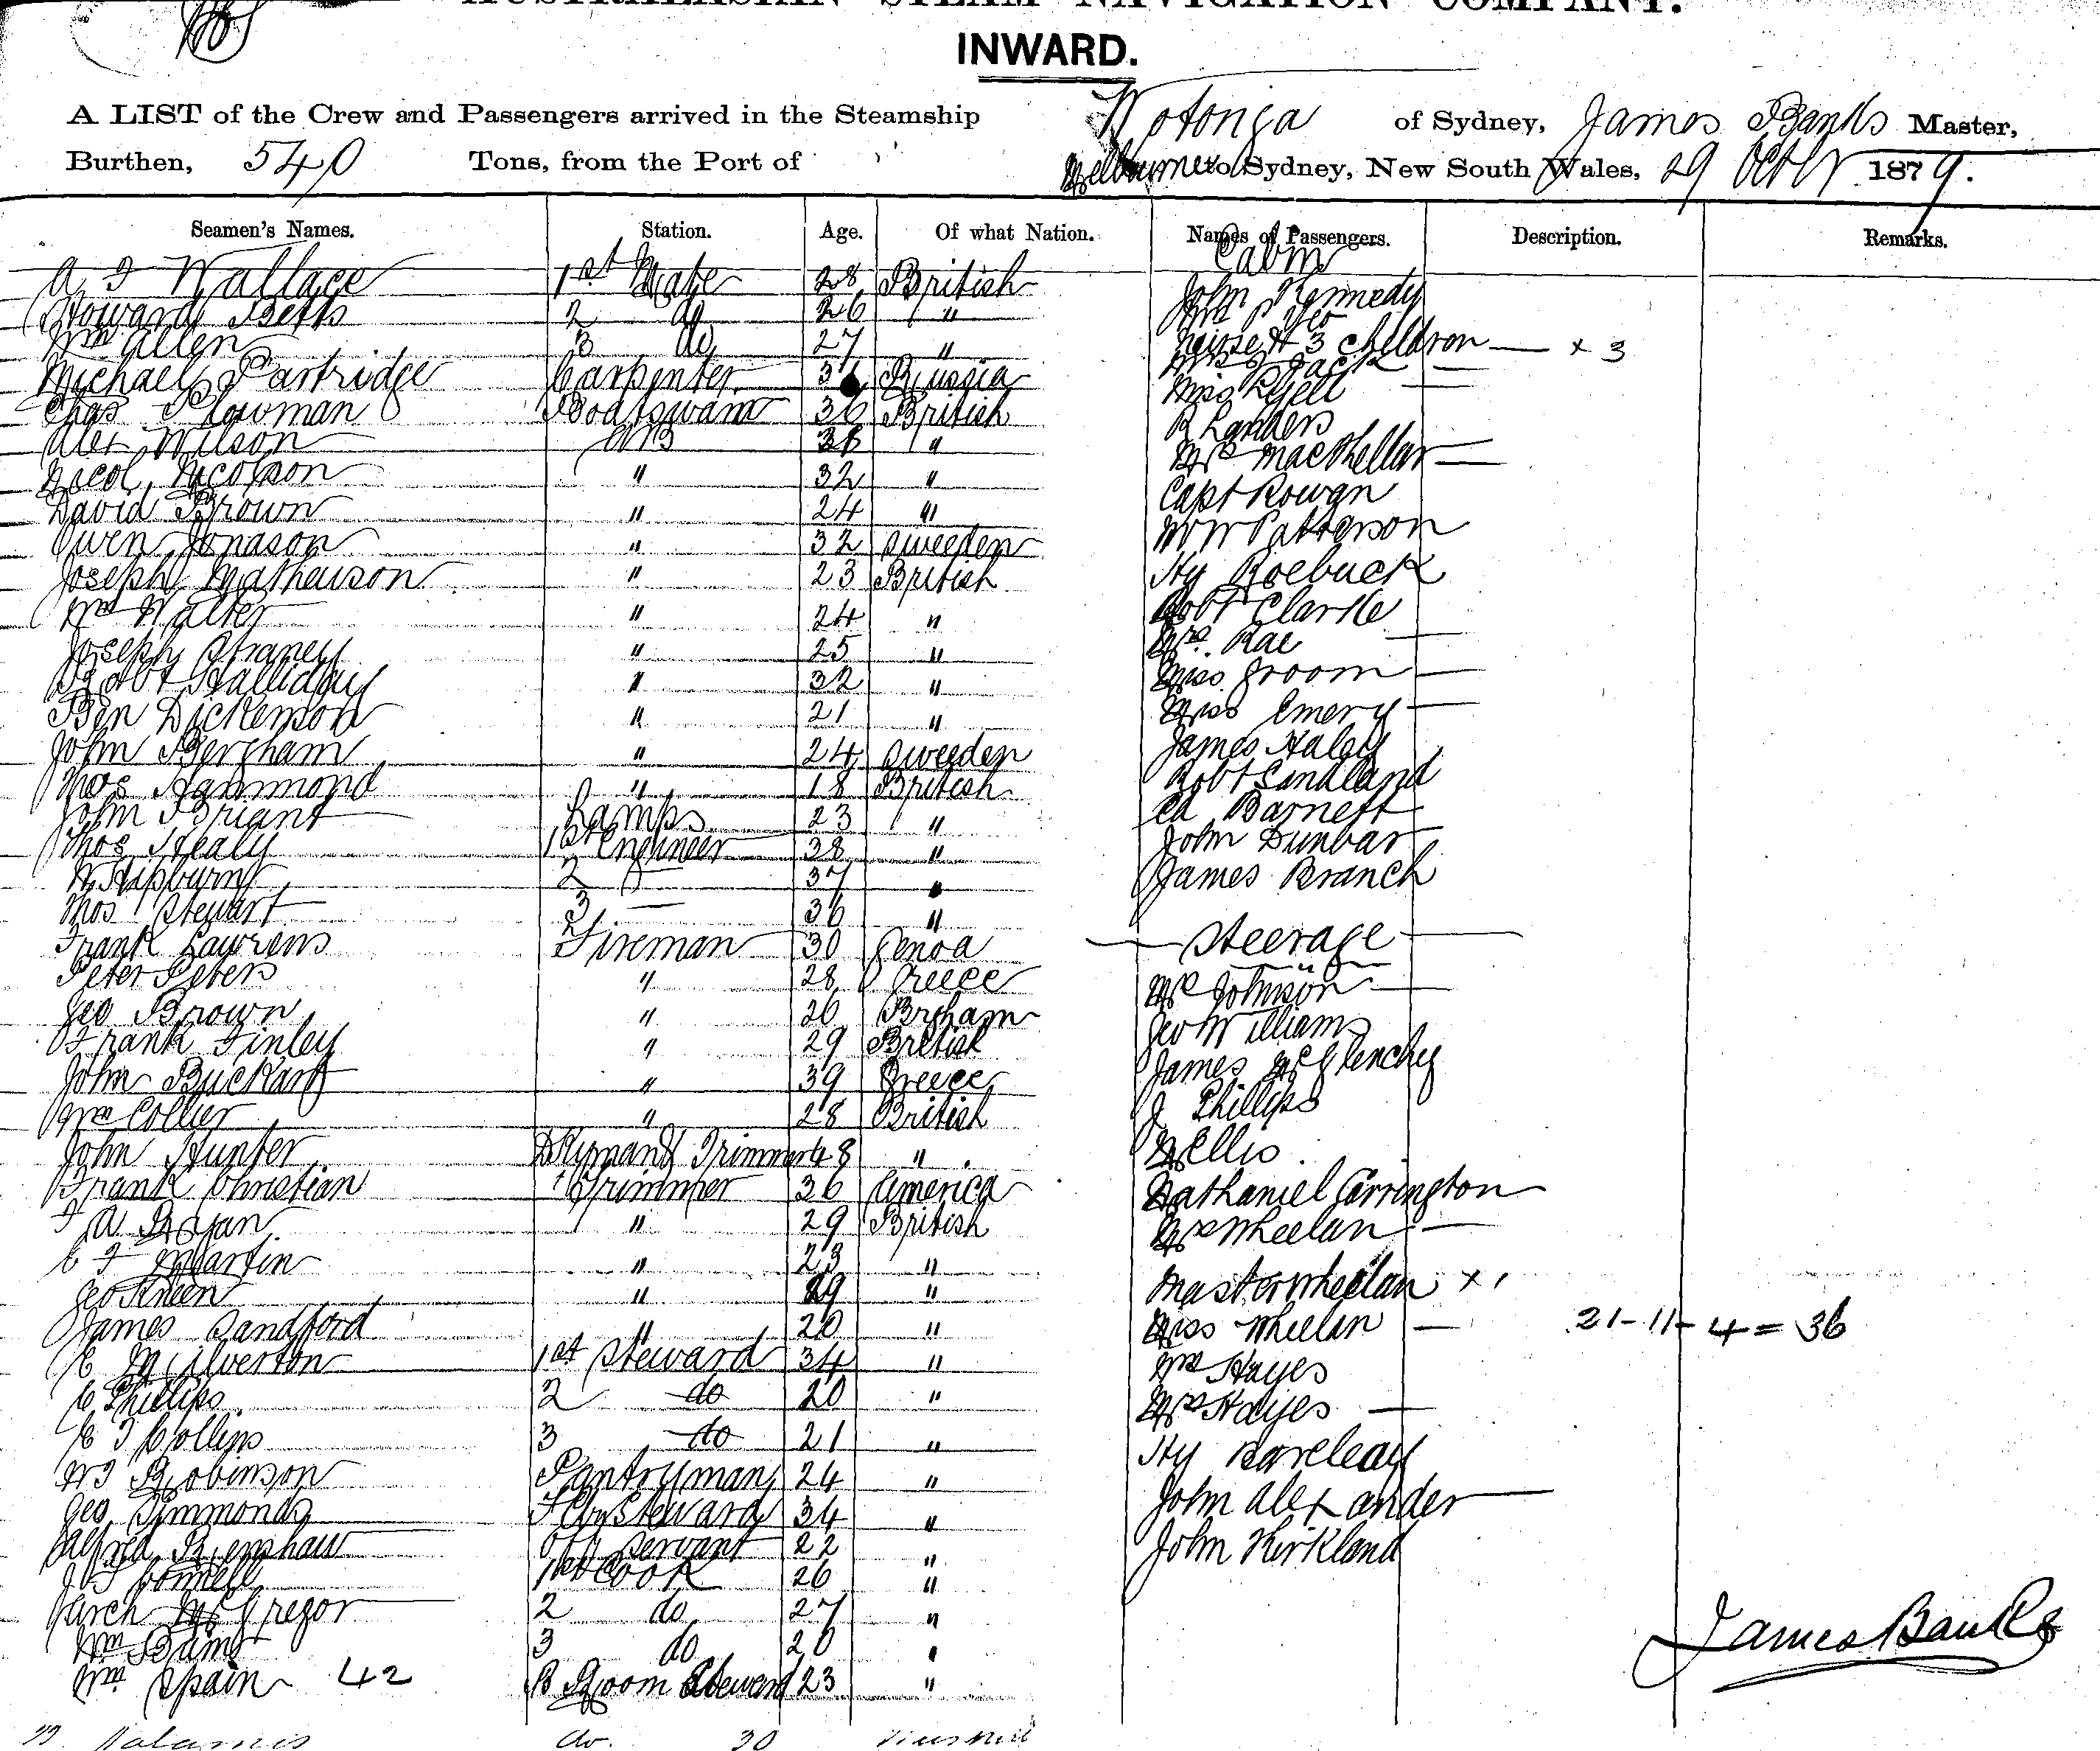 AUSTRALASIAN STEAM NAVIGATION COMPANY.
INWARD.
A LIST of the Crew and Passengers arrived in the Steamship Wotonga of Sydney, James Banks Master,
Burthen, 540 Tons, from the Port of Melbourne to Sydney, New South Wales, 29 Octr 1879.
Seamen's Names. Station. Age. Of what Nation. Names of Passengers. Description. Remarks.
Cabin
A J Wallace 1st Mate 28 British John Kennedy
Howard Betts 2 do 26 "
Wm Allen 3 do 27 " Nurse & 3 children — x 3
Michael Partridge Carpenter Russia Mrs Jack —
Chas Plowman Boatswain 36 British Miss —
Alex Wilson AB 36 " R Landers
Nicol Nicolson " 32 " Mrs MacKellar —
David Brown " 24 " Capt Rowan
Owen Jonason " 32 Sweeden W W Patterson
Joseph Matheuson " 23 British Hy Roebuck
Wm Walter " 24 " Robt Clarke
Joseph " 25 " Mrs. Rae —
Robt Halliday " 32 " Miss Groom —
Ben Dickenson " 21 " Miss Emery —
John Bergham " 24 Sweeden James Haley
Thos Hammond " 18 British Robt Sandland
John Briant Lamps 23 " Ed Barnett
Thos Healy 1st Engineer 38 " John Dunbar
W Hepburn 2 37 " James Branch
Thos Stewart 3 — 36 "
Frank Lawrens Fireman 30 Genoa — Steerage —
Peter Peters " 28 Greece Mrs Johnson —
Geo Brown " 26 Geo Williams
Frank Finley " 29 British James McGlenchy
John " 39 Greece J Phillips
Wm Collier " 28 British W Ellis
John Hunter Dkyman & Trimmer 48 " Nathaniel Carrington
Frank Christian Trimmer 36 America Mrs Wheelan —
J A " 29 British Master Wheelan x 1
C F Martin " 23 " Miss Wheelan —
Geo Kneen " 29 " Wm Hayes
James Sandford " 20 " 21 - 11 - 4 = 36
E Milverton 1st Steward 34 " Mrs Hayes —
C Phillips 2 do 20 " Hy
E J Collins 3 do 21 " John Alexander
W J Robinson Pantryman 24 " John Kirkland
Geo Simmonds Steward 34 "
Alfred Renshaw Servant 22 "
J Connell 1st Cook 26 "
Arch McGregor 2 do 27 " James Banks
Wm 3 do 20 "
Wm Spain 42 B Room Steward 23 "
do. 30